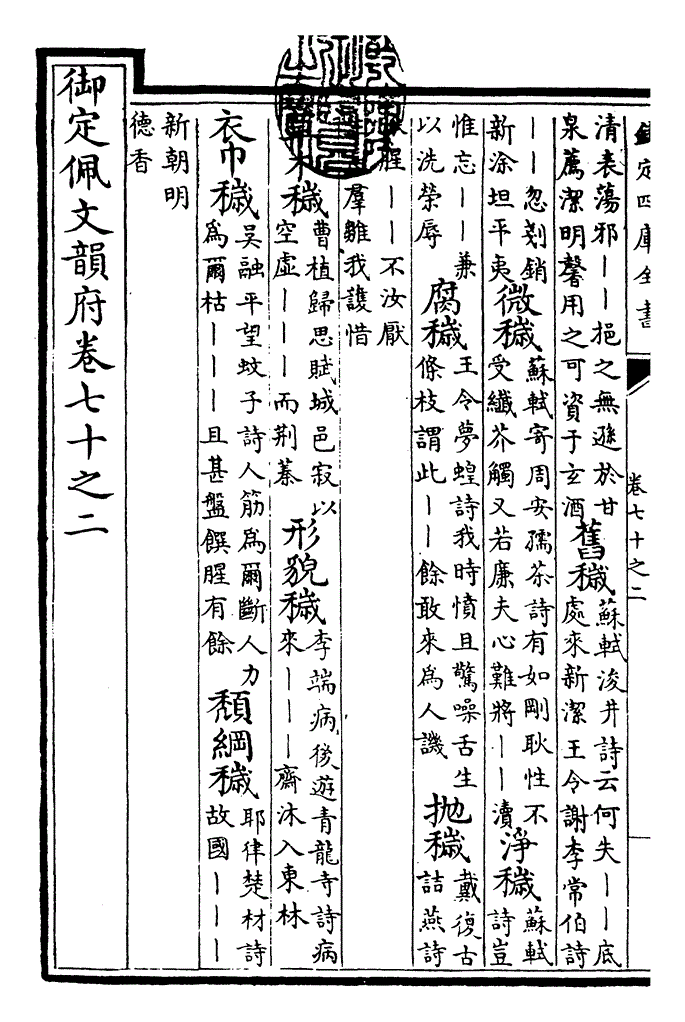 欽定四庫全書 卷七十之二
清表蕩邪——挹之無遜於甘
泉薦潔明馨用之可資于玄酒
舊穢
蘇軾浚井詩云何失——底
處來新潔王令謝李常伯詩
——忽剗銷
新涂坦平夷
微穢
蘇軾寄周安孺茶詩有如剛耿性不
受纖芥觸又若廉夫心難將——瀆
淨穢
蘇軾
詩豈
惟忘——兼
以洗榮辱
腐穢
王令夢蝗詩我時憤且驚噪舌生
條枝謂此——餘敢來為人譏
拋穢
戴復古
詰燕詩
腥——不汝厭
羣雛我護惜
木穢
曹植歸思賦城邑寂以
空虛———而荆蓁
形貌穢
李端病後遊青龍寺詩病
來———齋沐入東林
衣巾穢
吳融平望蚊子詩人筋為爾斷人力
為爾枯———且甚盤饌腥有餘
頹綱穢
耶律楚材詩
故國———
新朝明
德香
御定佩文韻府卷七十之二